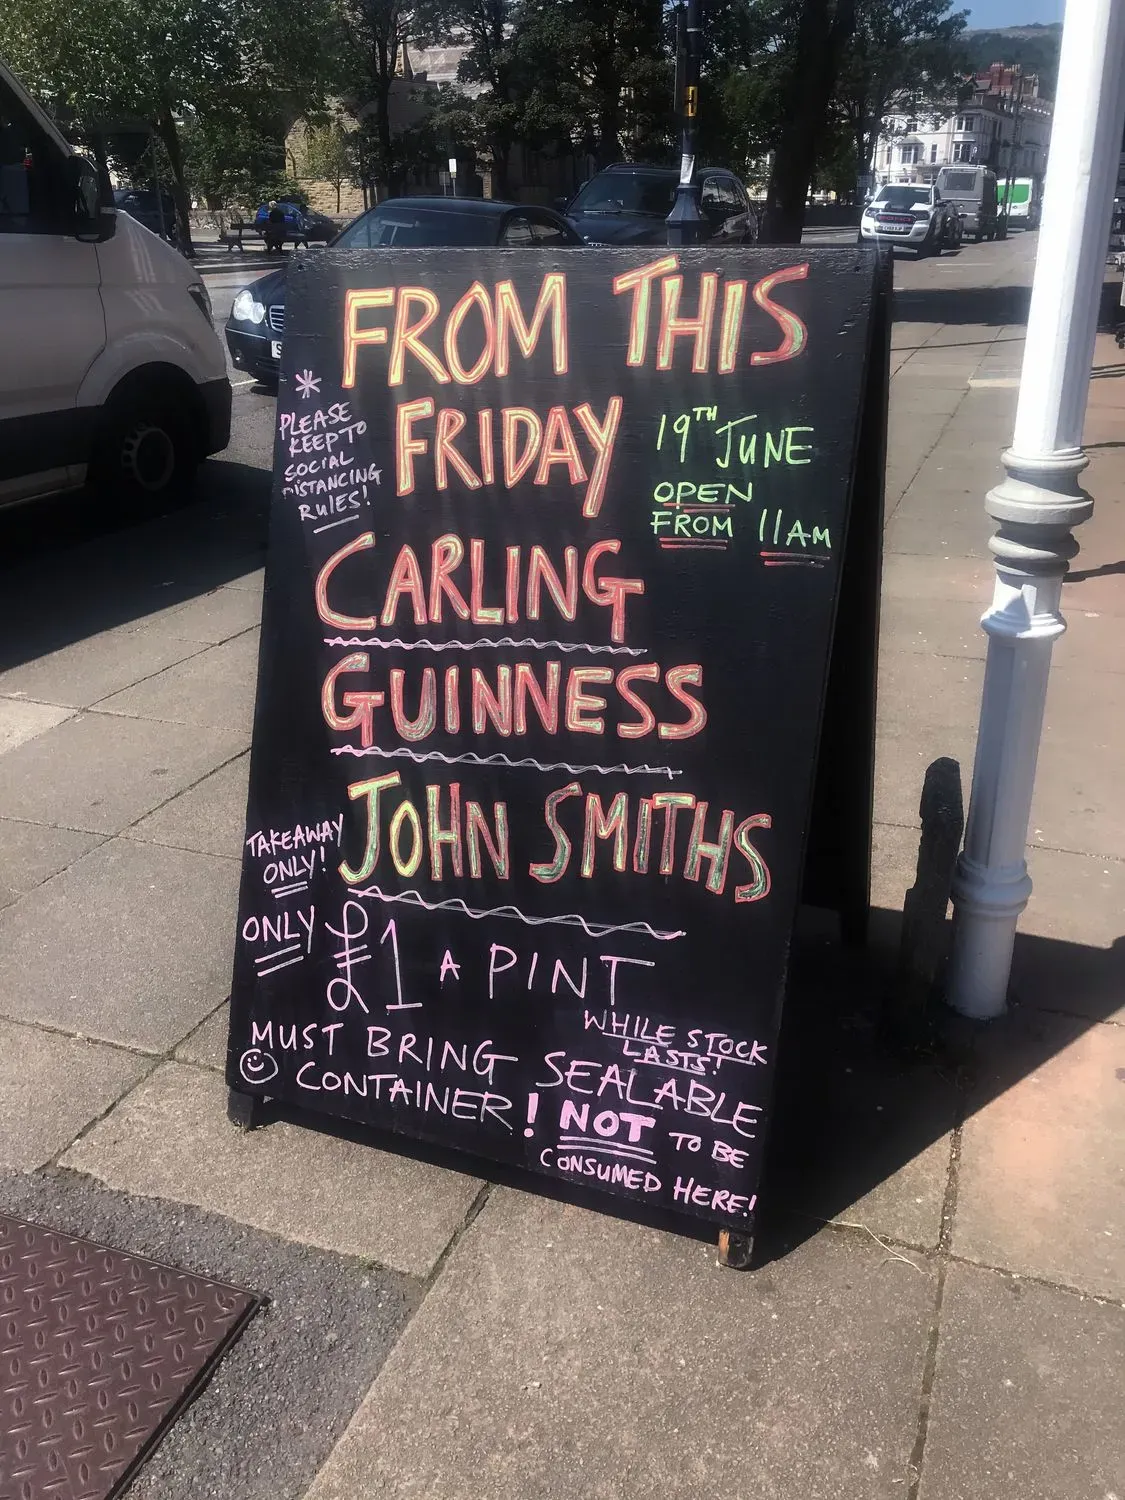 FROM THIS
FRIDAY
19TH JUNE
OPEN
FROM 11AM
*
PLEASE
KEEP TO
SOCIAL
DISTANCING
RULES!
CARLING
GUINNESS
JOHN SMITHS
TAKEAWAY
ONLY!
ONLY £1 A PINT
WHILE STOCK
LASTS!
MUST BRING SEALABLE
CONTAINER! NOT TO BE
CONSUMED HERE!